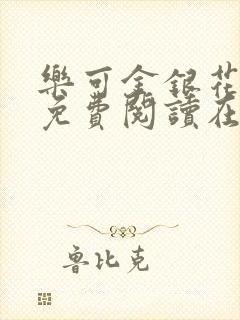 樂可金銀花
免費閱讀在
魯比克